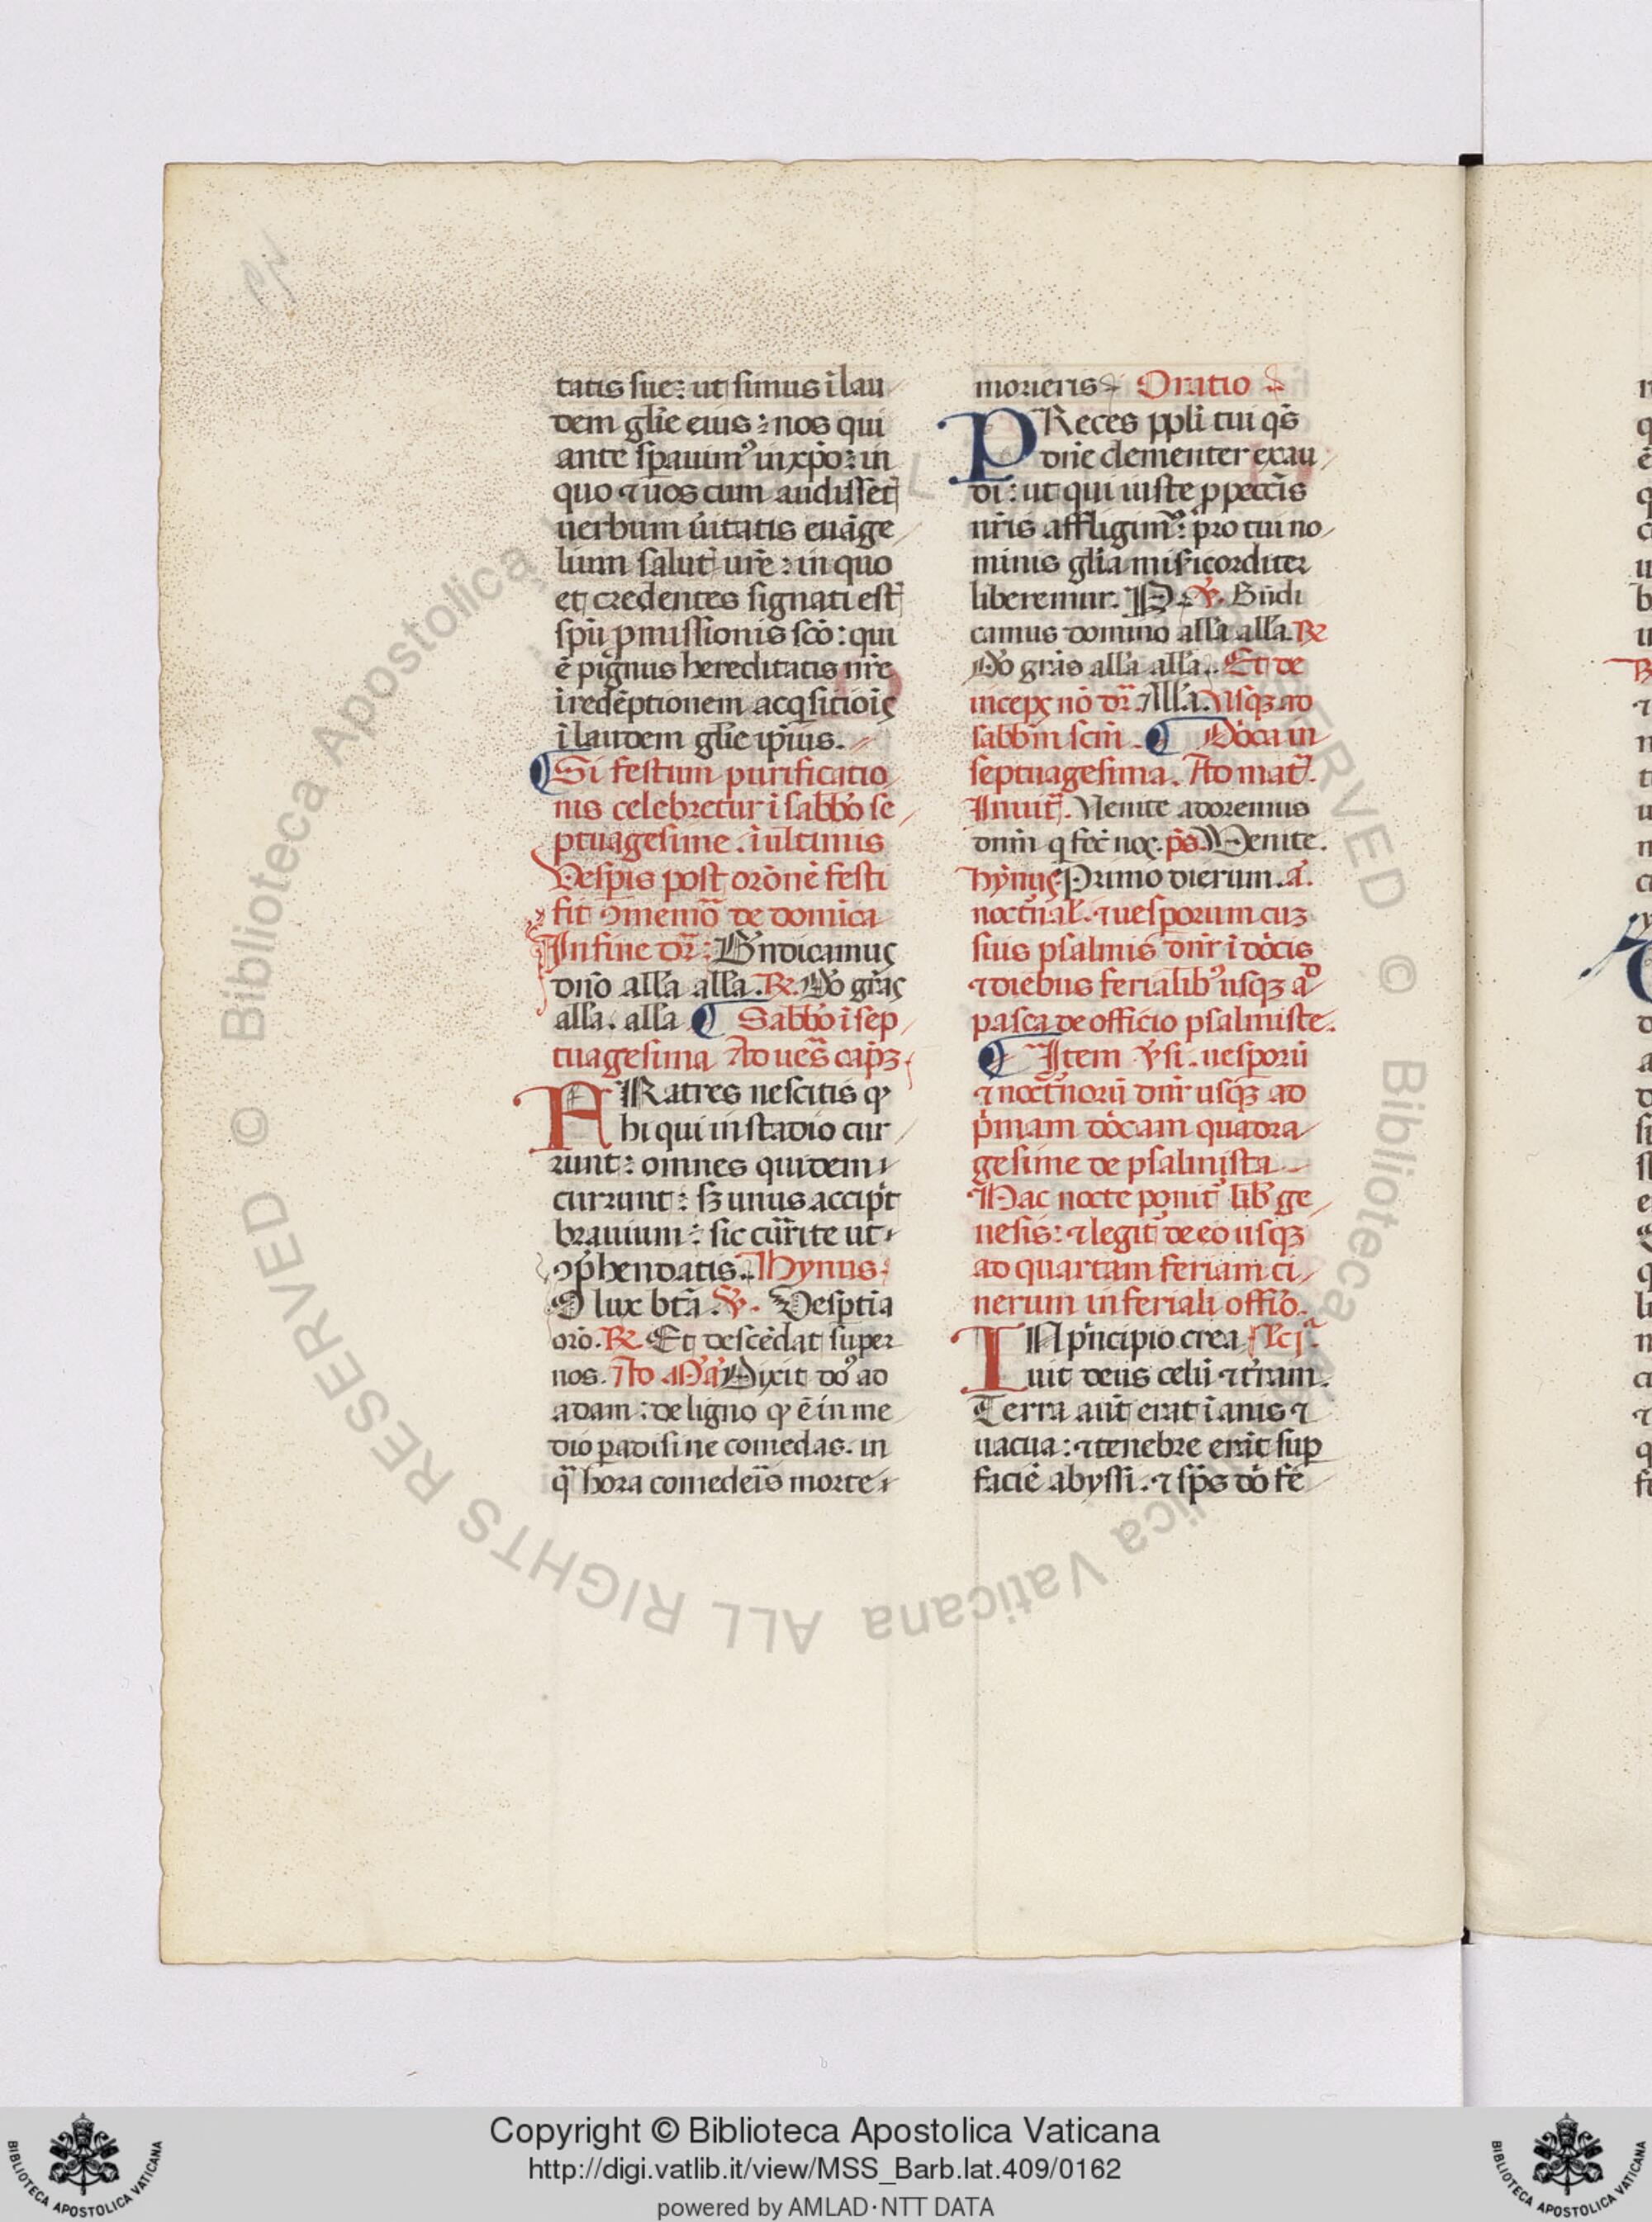 tatis sue: ut simus ī lau
dem gl̄ie eius: nos qui
ante sp̄auim᷒ in xp̄o: in
quo ⁊ uos cum audisset̄
uerbum ūitatis euāge
lium salut̄ ur̄e: in quo
et credentes signati est̄
sp̄ū ꝓmissionis sc̄o: qui
ē pignus hereditatis nr̄e
ī redēptionem acq̇sitiōīs
ī laudem gl̄ie ip̄ius.
Si festum purificatio
nis celebretur ī sabb̄o se
ptuagesime. ī ultimis
Vesp̄is post or̄onē festi
fit ꝯmemō de domīca
In fine dr̄: Bn̄dicamus
dn̄o all̄a all̄a. ℞. Do gr̄as
all̄a. all̄a Sabb̄o ī sep
tuagesima Ad ues̄ cap̄ꝫ
FRatres nescitis ꝙ
hi qui in stadio cur
runt: omnes quidem
currunt: sꝫ unus accip̄t
brauium: sic cur̄ite ut
ꝯp̄hendatis. Hynus
O lux bt̄a. ℣. Vesp̄tīa
or̄o. ℞. Et descēdat super
nos. Ad M̄ā Dixit do᷒ ad
adam: de ligno ꝙ ē in me
dio padisi ne comedas. in
q̄ hora comedeīs morte
morieris Oratio
PReces pp̄li tui q̄s
dn̄e clementer exau
di: ut qui iuste ꝓ peccīs
nr̄is affligim᷒: pro tui no
minis gl̄ia misericorditer
liberemur. P. ℣. Bn̄di
camus domino all̄a all̄a. ℞
Do gr̄as all̄a all̄a. Et de
inceps nō dr̄. All̄a. Usqꝫ ad
sabbm̄ scm̄. Dōca in
septuagesima. Ad mat̄.
Inuit̄. Venite adoremus
dnm̄ q fec̄ nos. p̄s. Venite.
Hynus Primo dierum. ā.
noct̄nal̄. ⁊ uesporum cuꝫ
suis psalmis dnr̄ ī dōcis
⁊ diebus ferialib᷒ usqꝫ ad
pasca de officio psalmiste.
Item ℣si. uesporū
⁊ noct̄norū dnr̄ usqꝫ ad
p̄mam dōcam quadra
gesime de psalmista
Hac nocte ponit̄ lib̄ ge
nesis: ⁊ legit̄ de eo usqꝫ
ad quartam feriam ci
nerum in feriali offīo.
IN p̄ncipio crea Lc̄ı̄ᵃ.
uit deus celū ⁊ tr̄am.
Terra aūt erat īanis ⁊
uacua: ⁊ tenebre erāt sup̄
faciē abyssi. ⁊ sp̄s dō fe
Copyright © Biblioteca Apostolica Vaticana
http://digi.vatlib.it/view/MSS_Barb.lat.409/0162
powered by AMLAD·NTT DATA
BIBLIOTECA APOSTOLICA VATICANA
BIBLIOTECA APOSTOLICA VATICANA
© Biblioteca Apostolica Vaticana ALL RIGHTS RESERVED